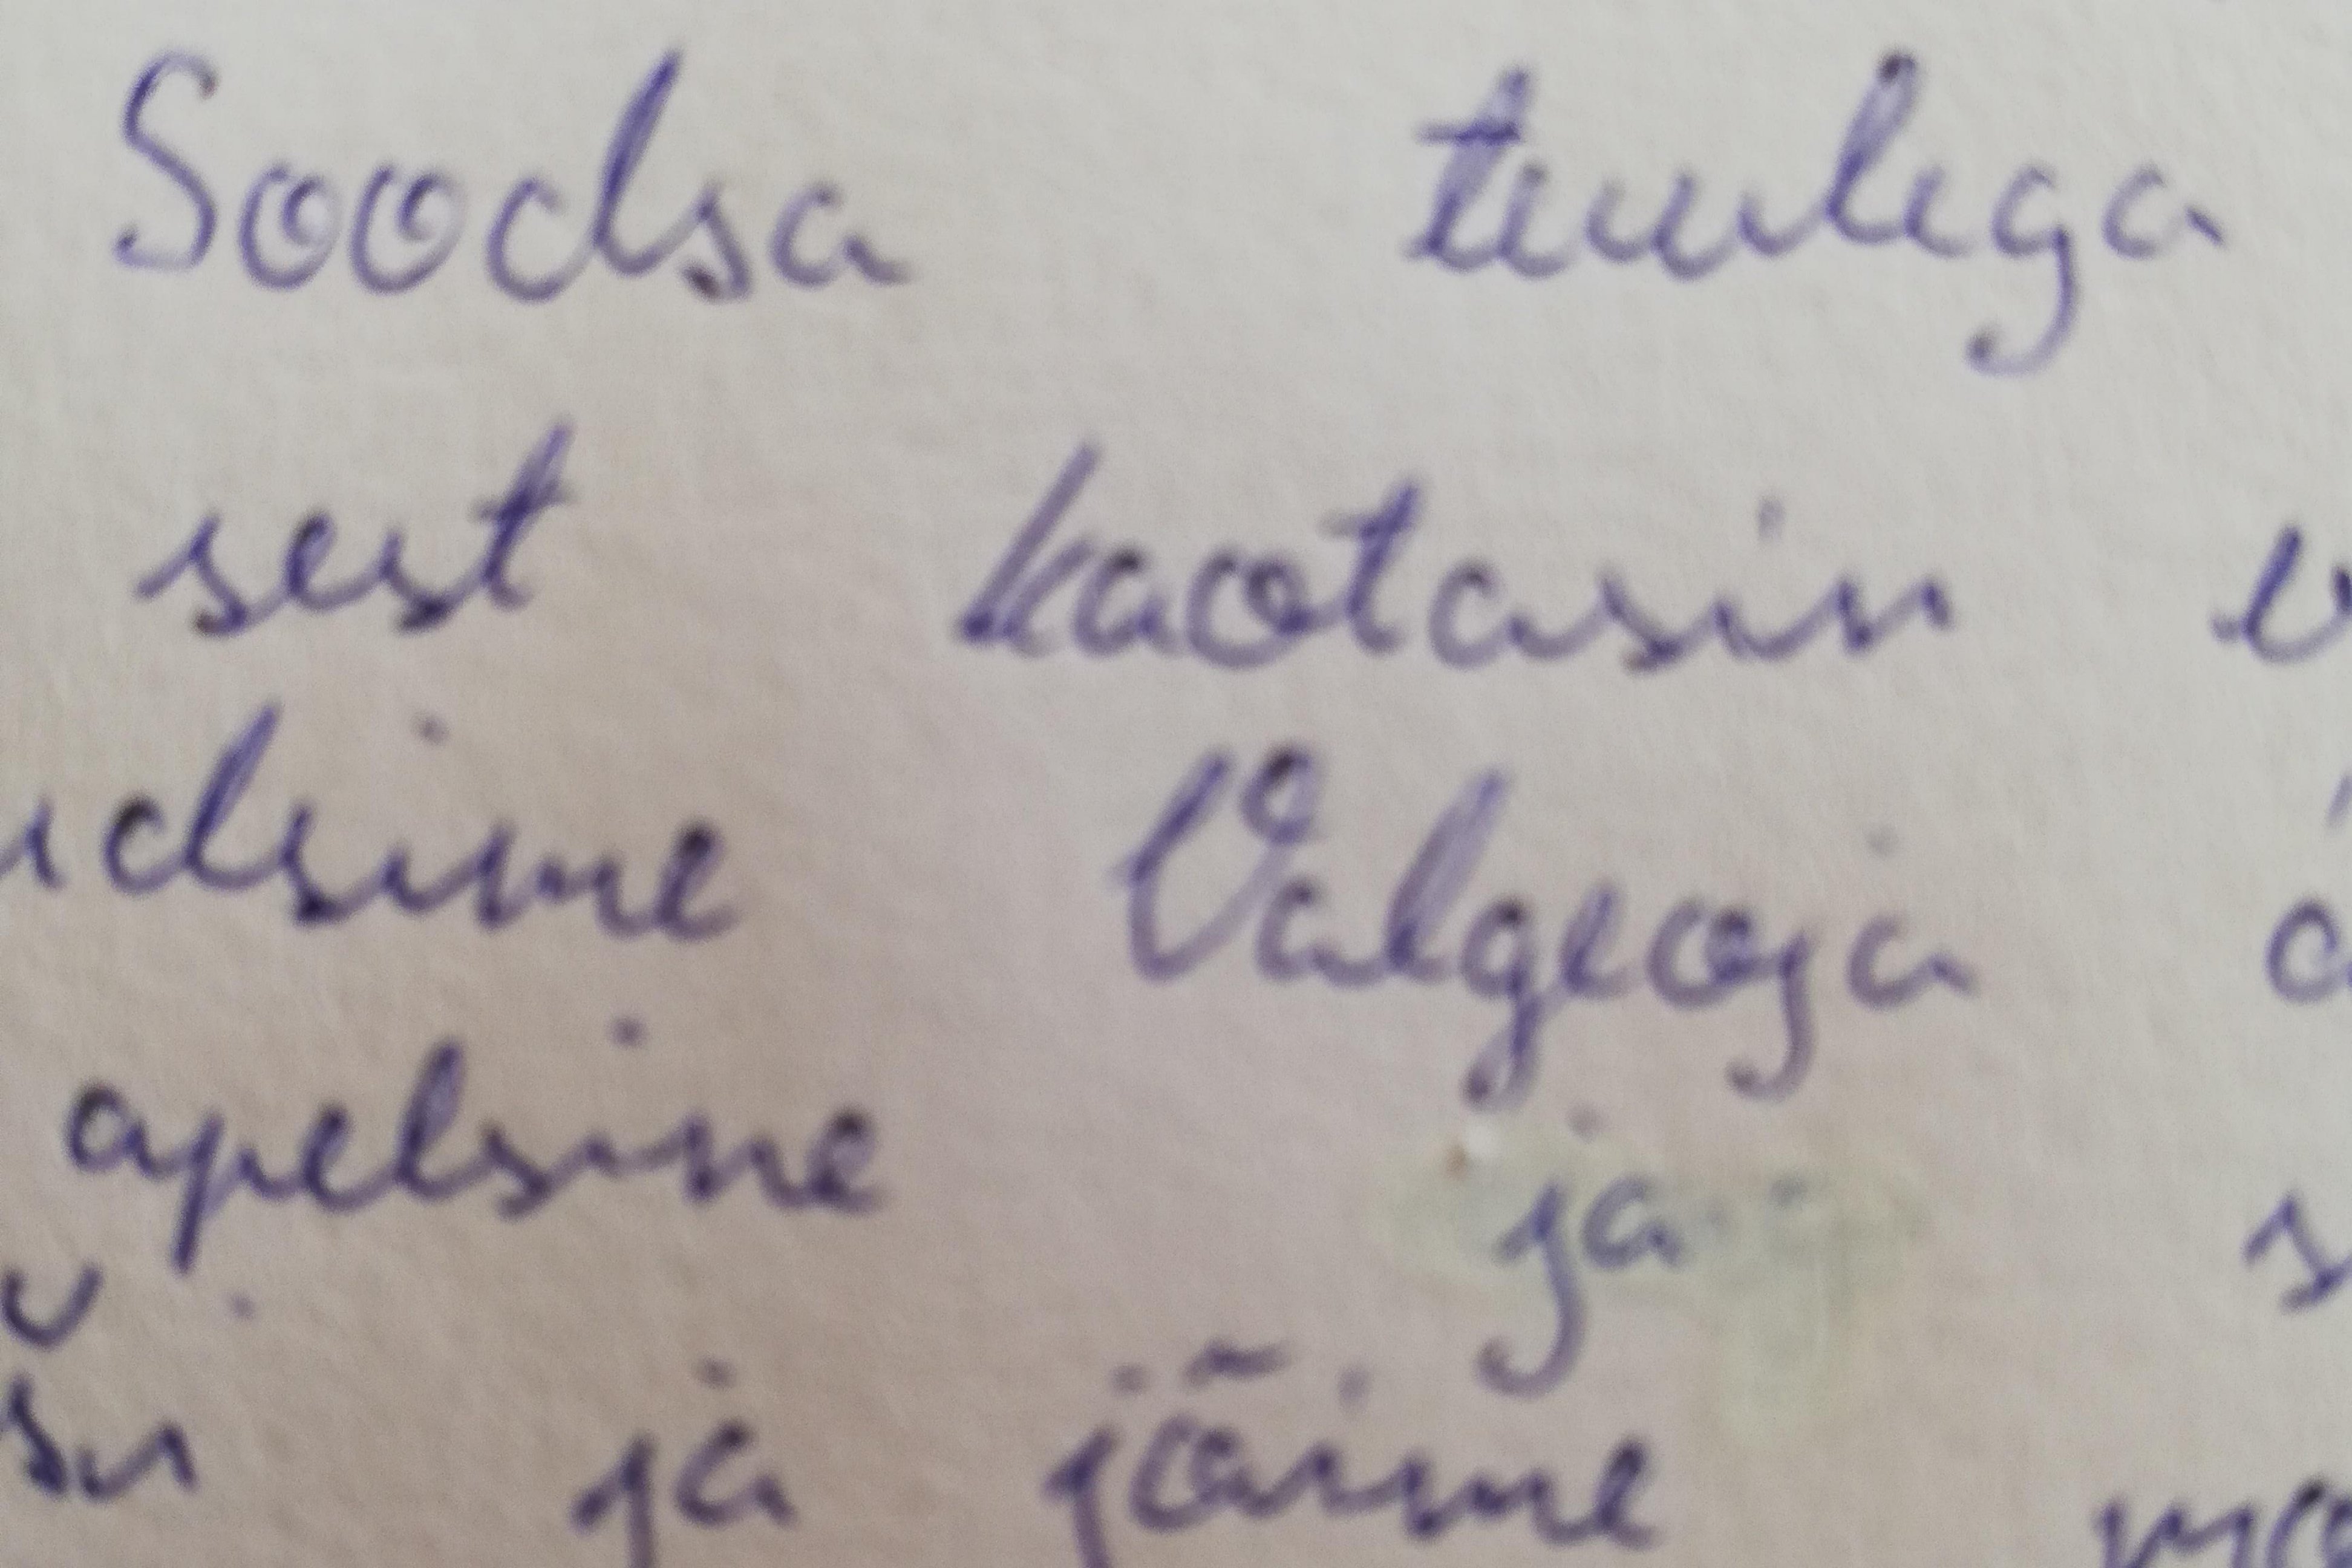 Soodsa tuulega
sest kaotasin
Valgeoja
apelsine ja
ja jäime